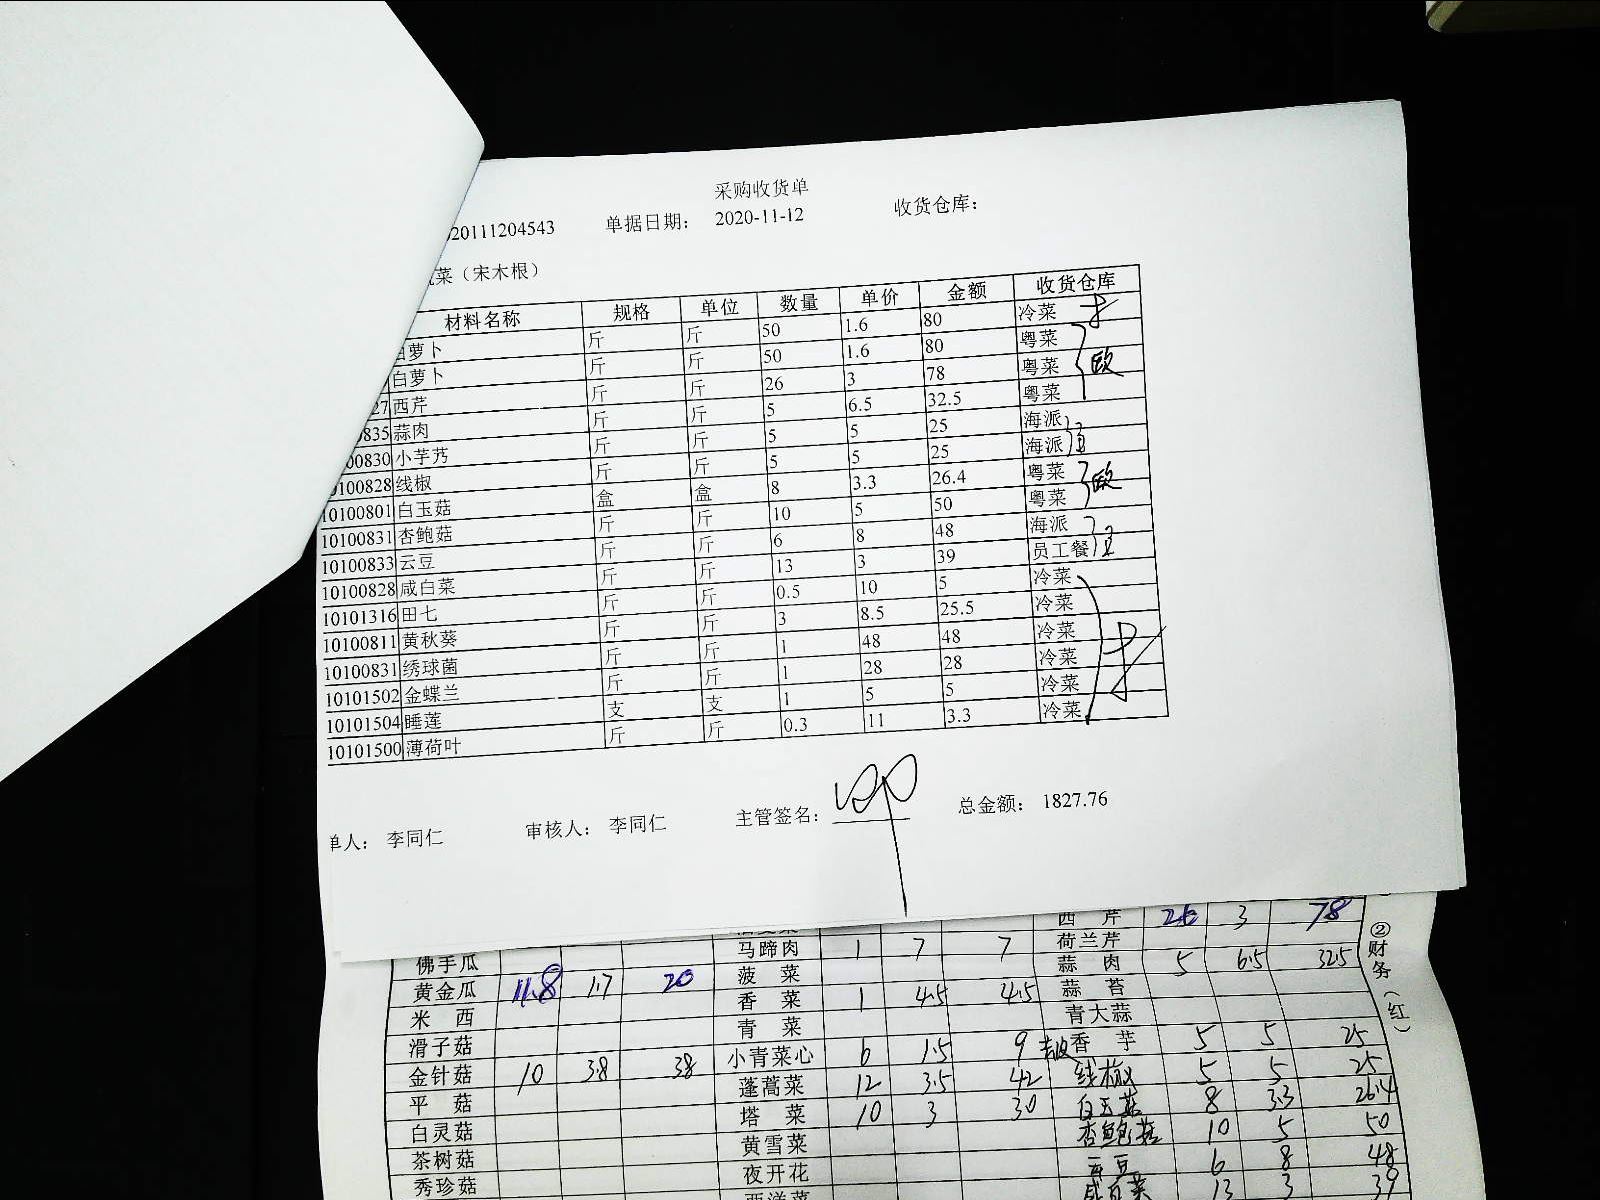 采购收货单
20111204543 单据日期: 2020-11-12 收货仓库:
菜（宋木根）
材料名称 规格 单位 数量 单价 金额 收货仓库
白萝卜 斤 斤 50 1.6 80 冷菜
白萝卜 斤 斤 50 1.6 80 粤菜
27 西芹 斤 斤 26 3 78 粤菜
835 蒜肉 斤 斤 5 6.5 32.5 粤菜
00830 小芋艿 斤 斤 5 5 25 海派
0100828 线椒 斤 斤 5 5 25 海派
10100801 白玉菇 盒 盒 8 3.3 26.4 粤菜
10100831 杏鲍菇 斤 斤 10 5 50 粤菜
10100833 云豆 斤 斤 6 8 48 海派
10100828 咸白菜 斤 斤 13 3 39 员工餐
10101316 田七 斤 斤 0.5 10 5 冷菜
10100811 黄秋葵 斤 斤 3 8.5 25.5 冷菜
10100831 绣球菌 斤 斤 1 48 48 冷菜
10101502 金蝶兰 斤 斤 1 28 28 冷菜
10101504 睡莲 支 支 1 5 5 冷菜
10101500 薄荷叶 斤 斤 0.3 11 3.3 冷菜
欧
欧
单人: 李同仁 审核人: 李同仁 主管签名: 总金额: 1827.76
西 芹 26 3 78
佛手瓜 马蹄肉 1 7 7 荷兰芹
黄金瓜 11.8 1.7 20 菠 菜 蒜 肉 5 6.5 32.5
米 西 香 菜 1 4.5 4.5 蒜 苔
滑子菇 青 菜 青大蒜
金针菇 10 3.8 38 小青菜心 6 1.5 9 香 芋 5 5 25
平 菇 蓬蒿菜 12 3.5 42 线椒 5 5 25
白灵菇 塔 菜 10 3 30 白玉菇 8 3.3 26.4
茶树菇 黄雪菜 杏鲍菇 10 5 50
秀珍菇 夜开花 云豆 6 8 48
西洋菜 咸白菜 13 3 39
②财务（红）